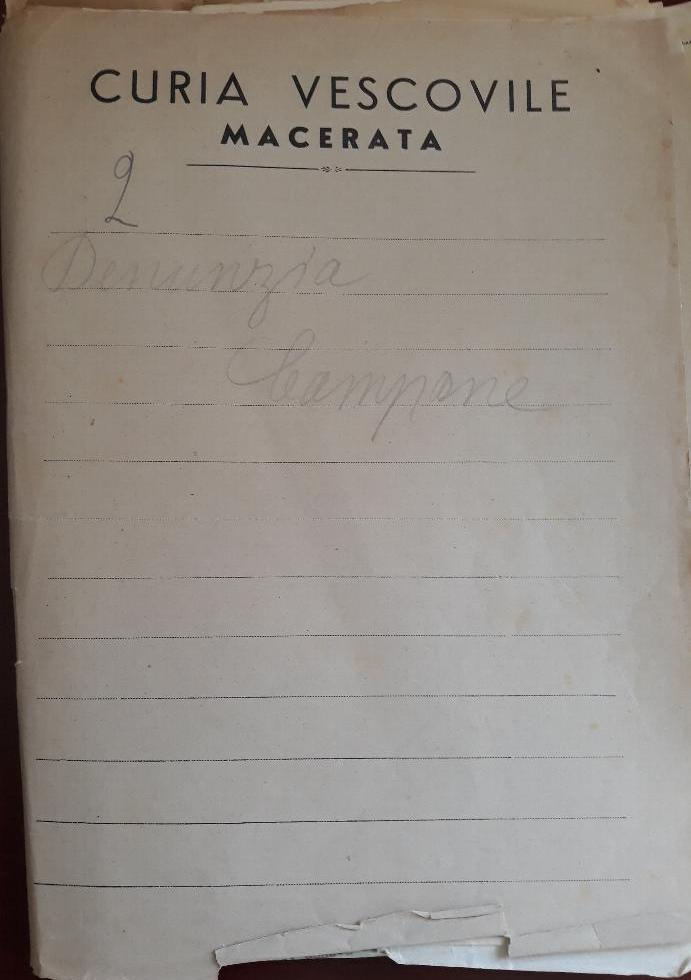 CURIA VESCOVILE
MACERATA
2
Denunzia
Campane